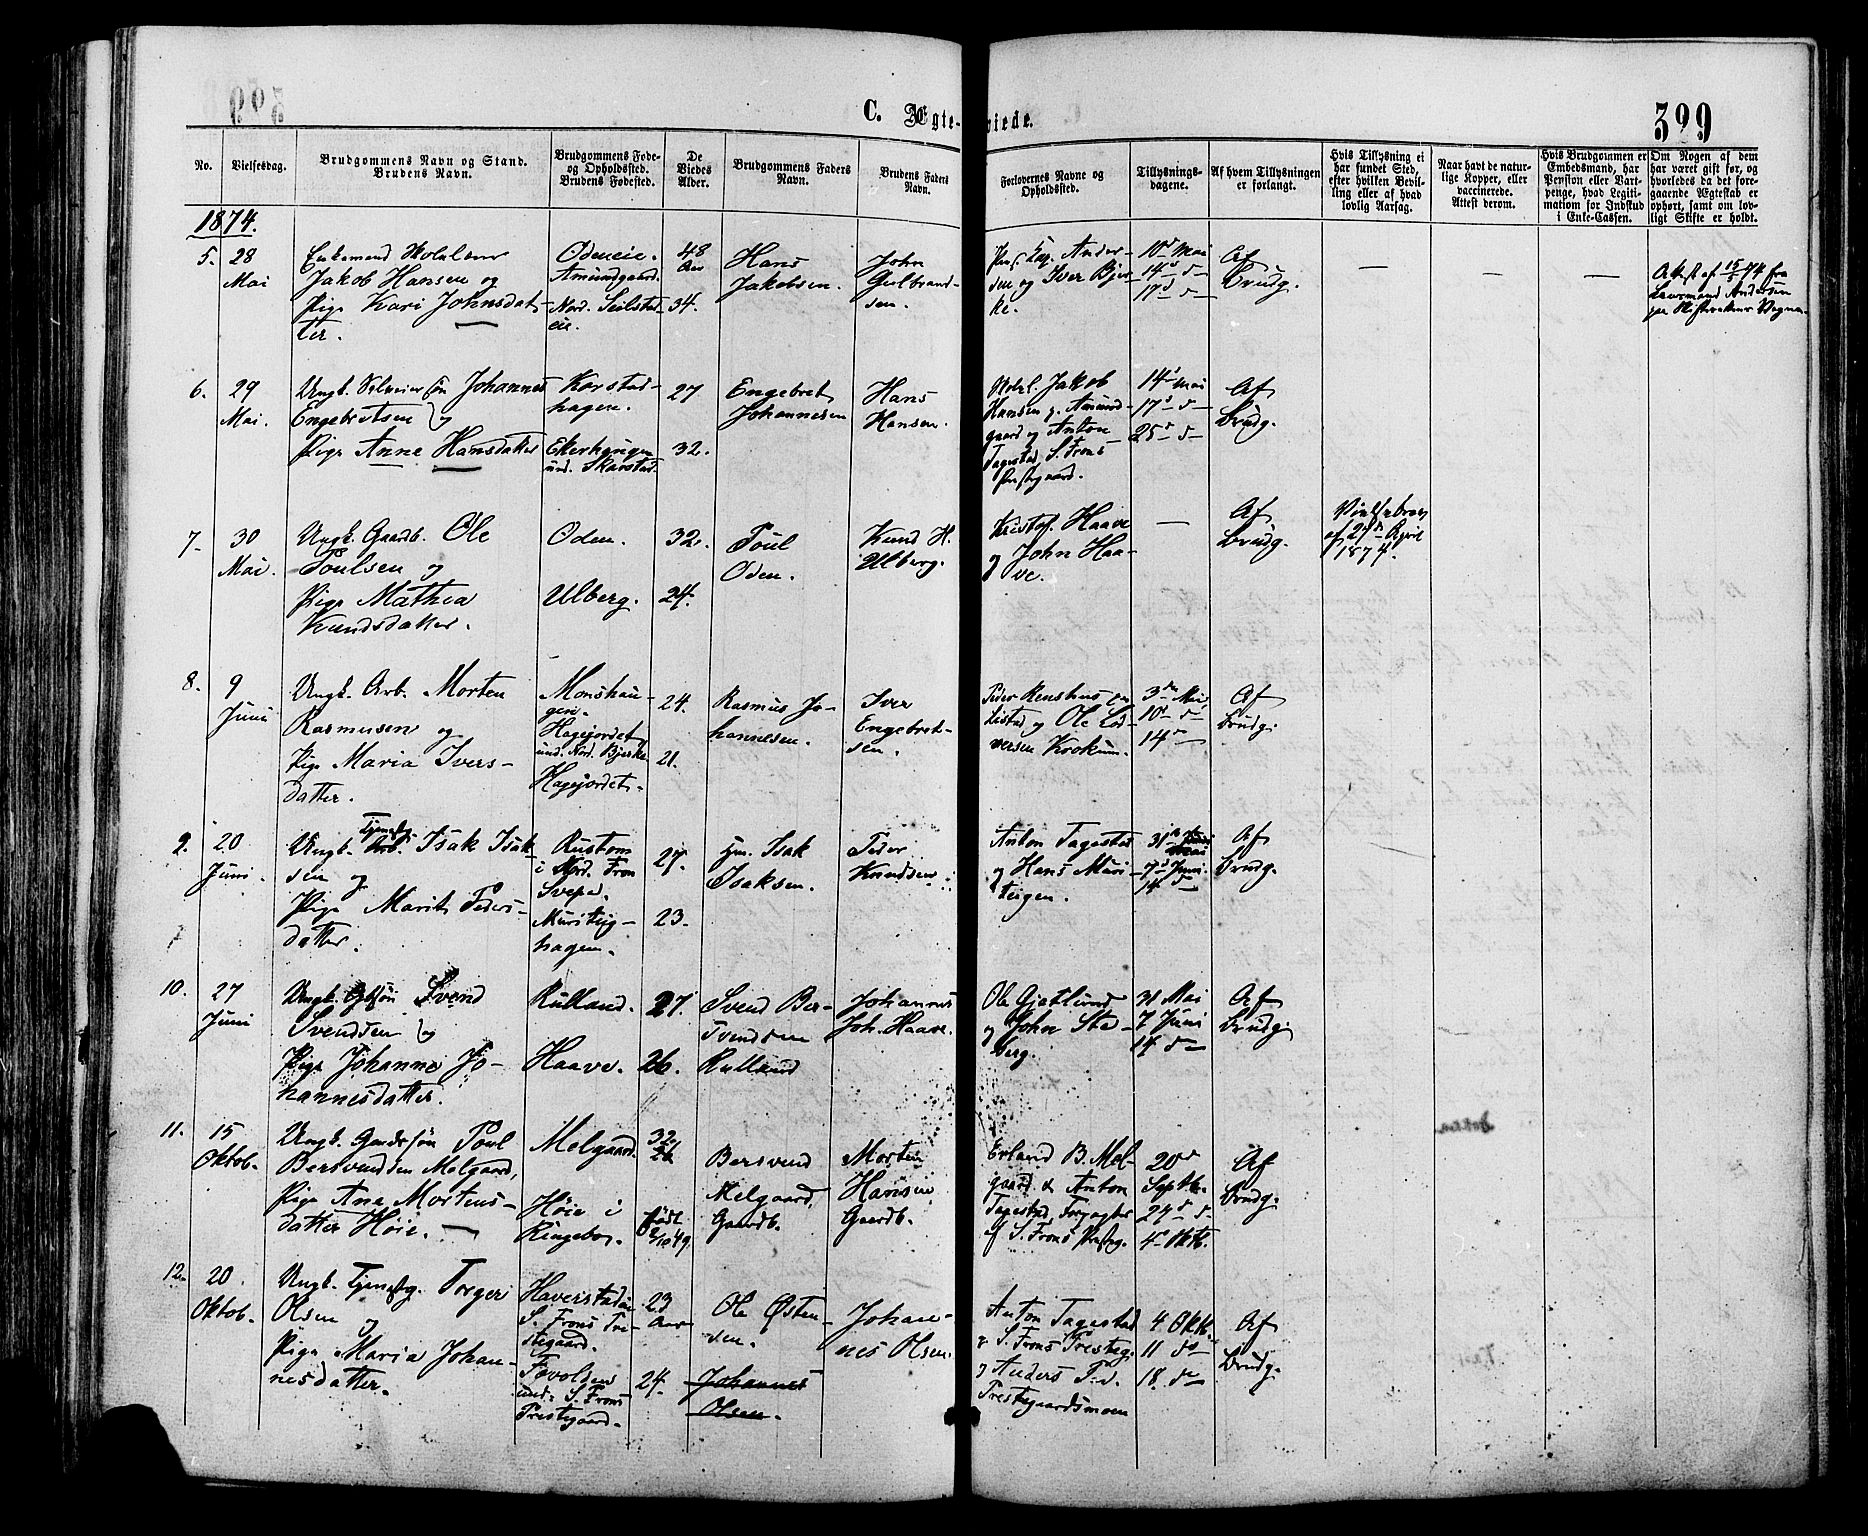 C. Ægte-viede.
399
No.
Vielsesdag.
Brudgommens Navn og Stand.
Brudens Navn.
Brudgommens Føde-
og Opholdssted.
Brudens Fødested.
De
Viedes
Alder.
Brudgommens Faders
Navn.
Brudens Faders
Navn.
Forlovernes Navne og
Opholdssted.
Tillysnings-
dagene.
Af hvem Tillysningen
er forlangt.
Hvis Tillysning ei
har fundet Sted,
efter hvilken Bevil-
ling eller af hvad
lovlig Aarsag.
Naar havt de natur-
lige Kopper, eller
vaccinerede.
Attest derom.
Hvis Brudgommen er
Embedsmand, har
Pension eller Vart-
penge, hvad Legiti-
mation for Indskud
i Enke-Cassen.
Om Nogen af dem
har været gift før, og
hvorledes da det fore-
gaaende Ægteskab er
ophørt, samt om lov-
ligt Skifte er holdt.
1874.
5.
28
Mai
Enkemand
Jakob Hansen og
Pige Kari Johnsdat-
ter.
Odeneie.
Amundgaard.
Nord. Seilstad-
eie.
48
Aar
34.
Hans
Jakobsen.
John
Gulbrand-
sen.
Ander-
sen og Iver Bjer-
ke.
10d Mai
14d d-
17d d-
Af
Brudg.
—
—
—
Att. af 15/5 74 fra
Lensmand Andersen
6.
29
Mai.
Ungk. Selveiersøn Johannes
Engebretsen og
Pige Anne Hansdatter
Korstad-
hagen.
Ekerhaugen
und. Skarstad.
27
32.
Engebret
Johannesen
Hans
Hansen.
Jakob
Hansen g. Amund-
gaard og Anton
Tagestad S. Frons
Præstegaard.
14d Mai
17d d-
25d d-
Af
Brudg.
7-
30
Mai.
Ungk. Gaardb. Ole
Poulsen og
Pige Mathea
Knudsdatter.
Oden.
Ulberg.
32.
24.
Poul
Oden.
Knud H.
Ulberg.
Kristof. Haave
og John Haa-
ve.
—
Af
Brudg.
Vielsebrev
af 27d April
1874.
8.
9
Juni
Ungk. Arb. Morten
Rasmusen og
Pige Maria Ivers-
datter.
Monshau-
gen.
Hagejordet
und. Nord. Bjerke
Hagejordet.
24.
21.
Rasmus Jo-
hannesen.
Iver
Engebret-
sen.
Peder Renshus
Listad og Ole
versen Krokum.
3de Mai,
10d d-
14d-
Af
Brudg.
9.
20
Juni.
Ungk. Tjenestg. Isak Isak-
sen og
Pige Marit Peders-
datter.
Rustom
i Nord. Fron
Svepa.
Muristuig-
hagen.
27.
23.
Isak
Isaksen.
Peder
Knudsen.
Anton Tagestad
og Hans Muri-
teigen.
31
7d Juni.
14 d-
Af
Brudg.
10.
27
Juni
Ungk. Svend
Svendsen og
Pige Johanne Jo-
hannesdatter.
Rulland.
Haave.
27.
26.
Svend Ber-
svendsen
Rulland
Johannes
Joh. Haave.
Ole Gjetlund
og John Sta-
berg.
31 Mai
7 Juni
14 d-
Af
Brudg.
11.
15
Oktob.
Ungk. Gaardsøn Poul
Bersvendsen Melgaard,
Pige Ane Mortens-
datter Høie.
Melgaard.
Høie i
Ringebo.
32
født
Bersvend
Melgaard,
Gaardb.
Morten
Hansen
Gaardb.
Erland B. Mel-
gaard & Anton
Tagestad, Forpagter
af S. Frons Præsteg.
20d
Septb.
27d d
4d Oktb.
Af
Brudg.
12.
20.
Oktob.
Ungk. Tjenestg. Torger
Olsen og
Pige Maria Johan-
nesdatter.
Haverstadeie
S. Frons Præ-
stegaard.
Fovolden
und. S. Frons
Prestegaard.
23
Aar
24.
Ole Østen-
sen.
Johannes
Olsen.
Johan-
nes Olsen.
Anton Tagestad
S. Frons Presteg.
og Anders
Prestegaardsmoen
4 Oktb.
11 do
18. do
Af
Brudg.